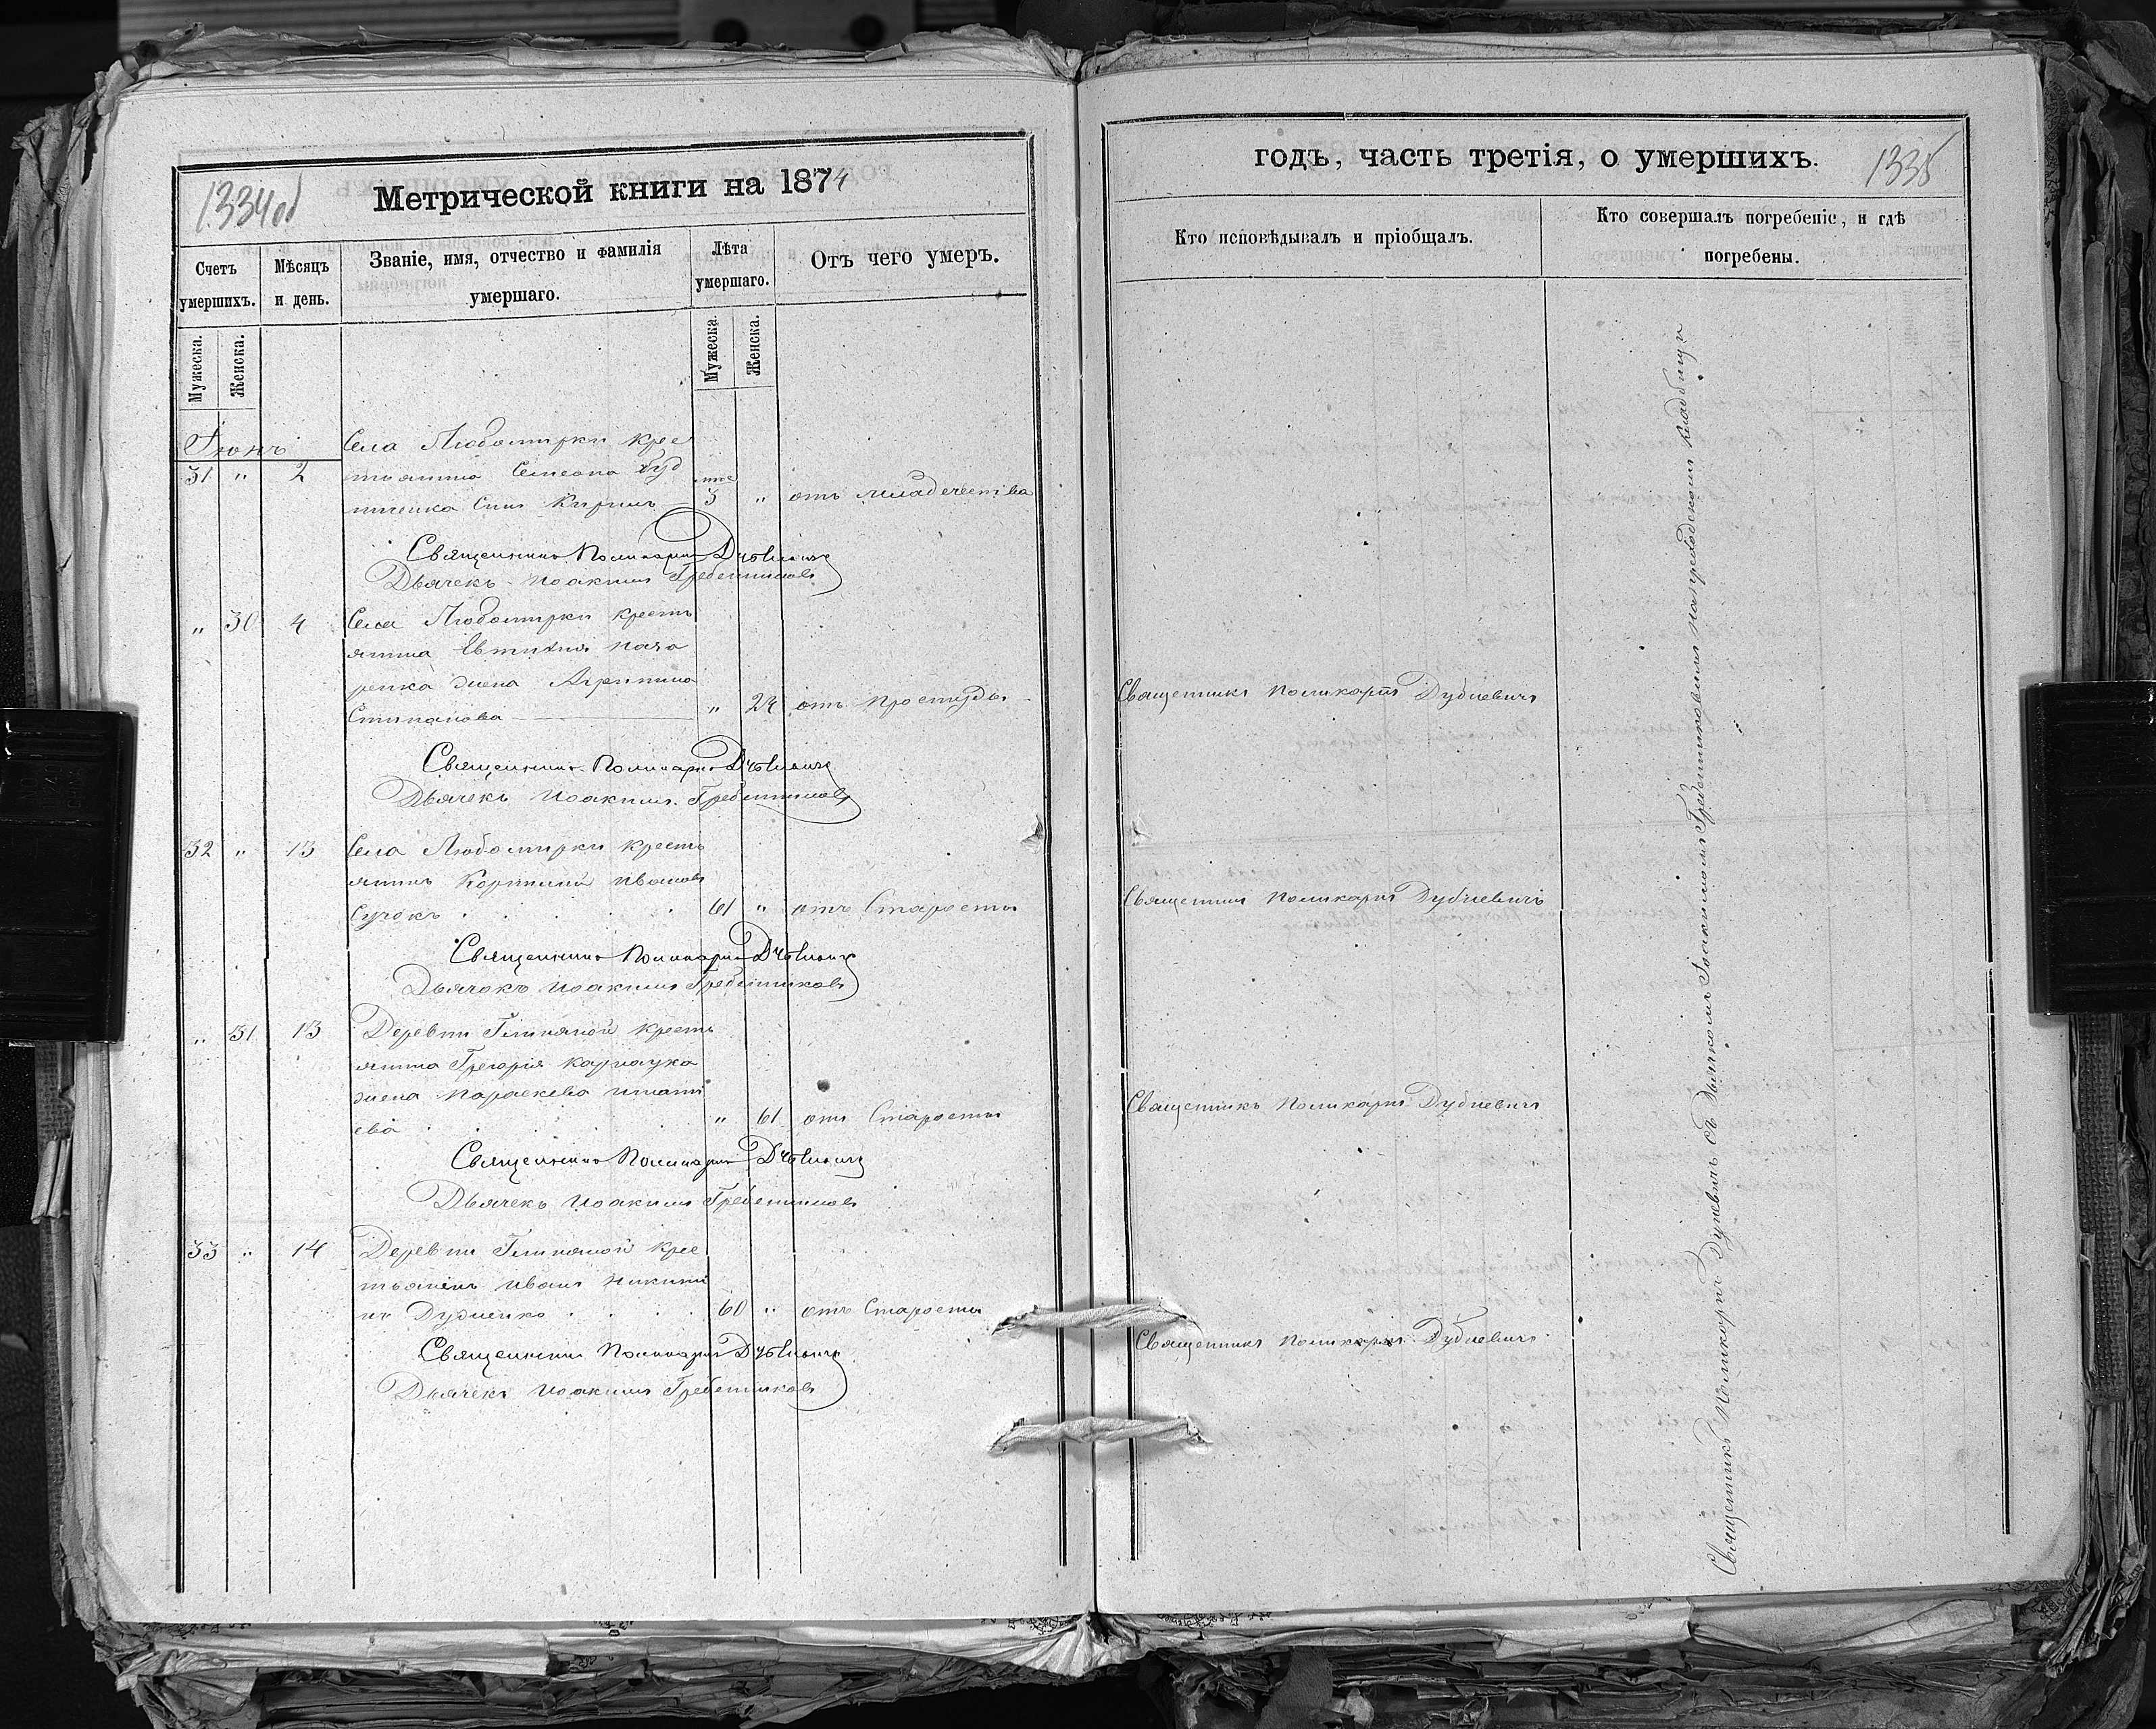 1334об
Метрической книги на 1874
Счетъ умершихъ.
Мѣсяцъ и день.
Званіе, имя, отчество и фамилія умершаго.
Лѣта умершаго.
Отъ чего умеръ.
Мужеска.
Женска.
Мужеска.
Женска.
Іюнь
Села Любомирки кре
31 " 2 стьянина Семеона
сынъ Кирилъ 3 " отъ младенчества
Священникъ Поликарпъ Дубневичъ
Дьячекъ Иоакимъ Гребенниковъ
" 30 4 Села Любомирки кресть
янина Евтихия Наза
ренка жена Агрипина
Стипанова " 24 отъ простуды
Священникъ Поликарпъ Дубневичъ
Дьячекъ Иоакимъ Гребенниковъ
32 " 13 Села Любомирки кресть
янинъ Корнилий Ивановъ
Сучокъ 61 " отъ Старости
Священникъ Поликарпъ Дубневичъ
Дьячокъ Иоакимъ Гребенниковъ
" 31 13 Деревни Глиняной кресть
янина Грегорія Карнауха
жена Параскева Игнати
ева " 61 отъ Старости
Священникъ Поликарпъ Дубневичъ
Дьячекъ Иоакимъ Гребенниковъ
33 " 14 Деревни Глиняной кре
стьянинъ Иванъ Никити
нъ Дудченко 60 " отъ Старости
Священникъ Поликарпъ Дубневичъ
Дьячекъ Иоакимъ Гребенниковъ
годъ, часть третія, о умершихъ.
1335
Кто исповѣдывалъ и пріобщалъ.
Кто совершалъ погребеніе, и гдѣ
погребены.
Священникъ Поликарпъ Дубневичъ
Священникъ Поликарпъ Дубневичъ
Священникъ Поликарпъ Дубневичъ
Священникъ Поликарпъ Дубневичъ
Священникъ Поликарпъ Дубневичъ съ дьячкомъ Іоакимомъ Гребенниковымъ на приходскомъ кладбищѣ